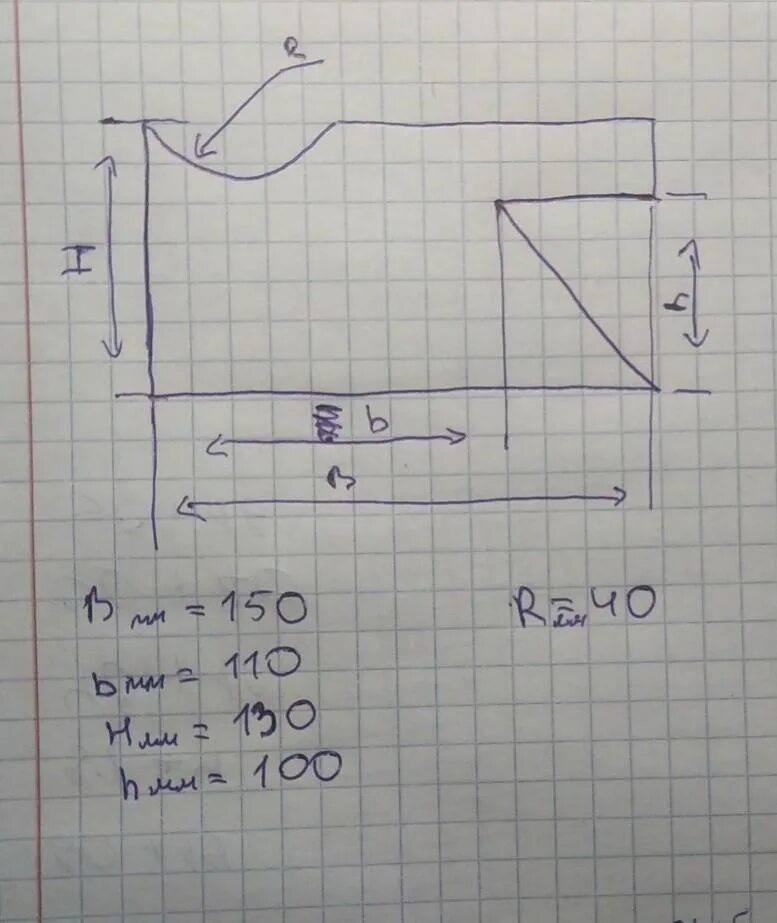 R
H
h
b
B
B мм = 150
R мм = 40
b мм = 110
H мм = 130
h мм = 100